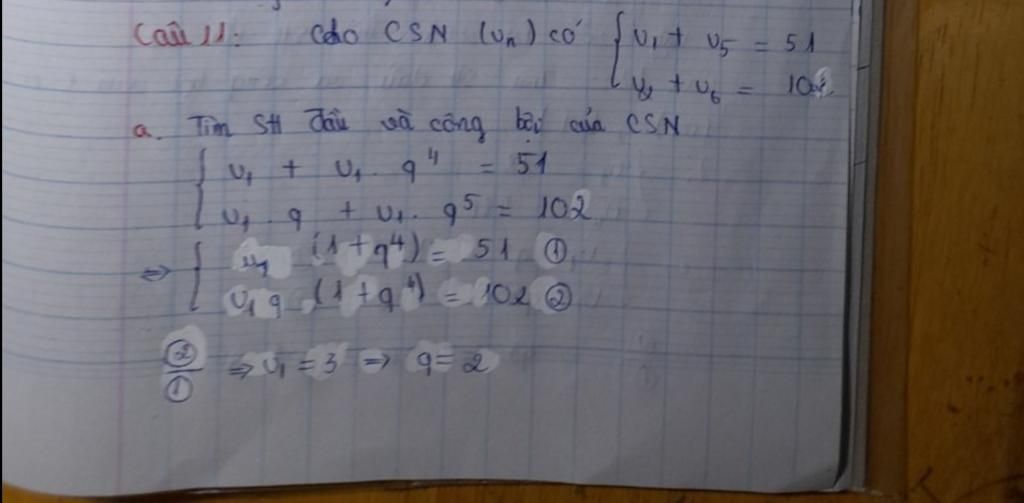 Câu 11: Cho CSN (uₙ) có { u₁ + u₅ = 51
u₂ + u₆ = 102
a. Tìm SH đầu và công bội của CSN
{ u₁ + u₁ . q⁴ = 51
u₁ . q + u₁ . q⁵ = 102
⇔ { u₁ (1 + q⁴) = 51 ①
u₁ q (1 + q⁴) = 102 ②
②/① ⇒ u₁ = 3 ⇒ q = 2